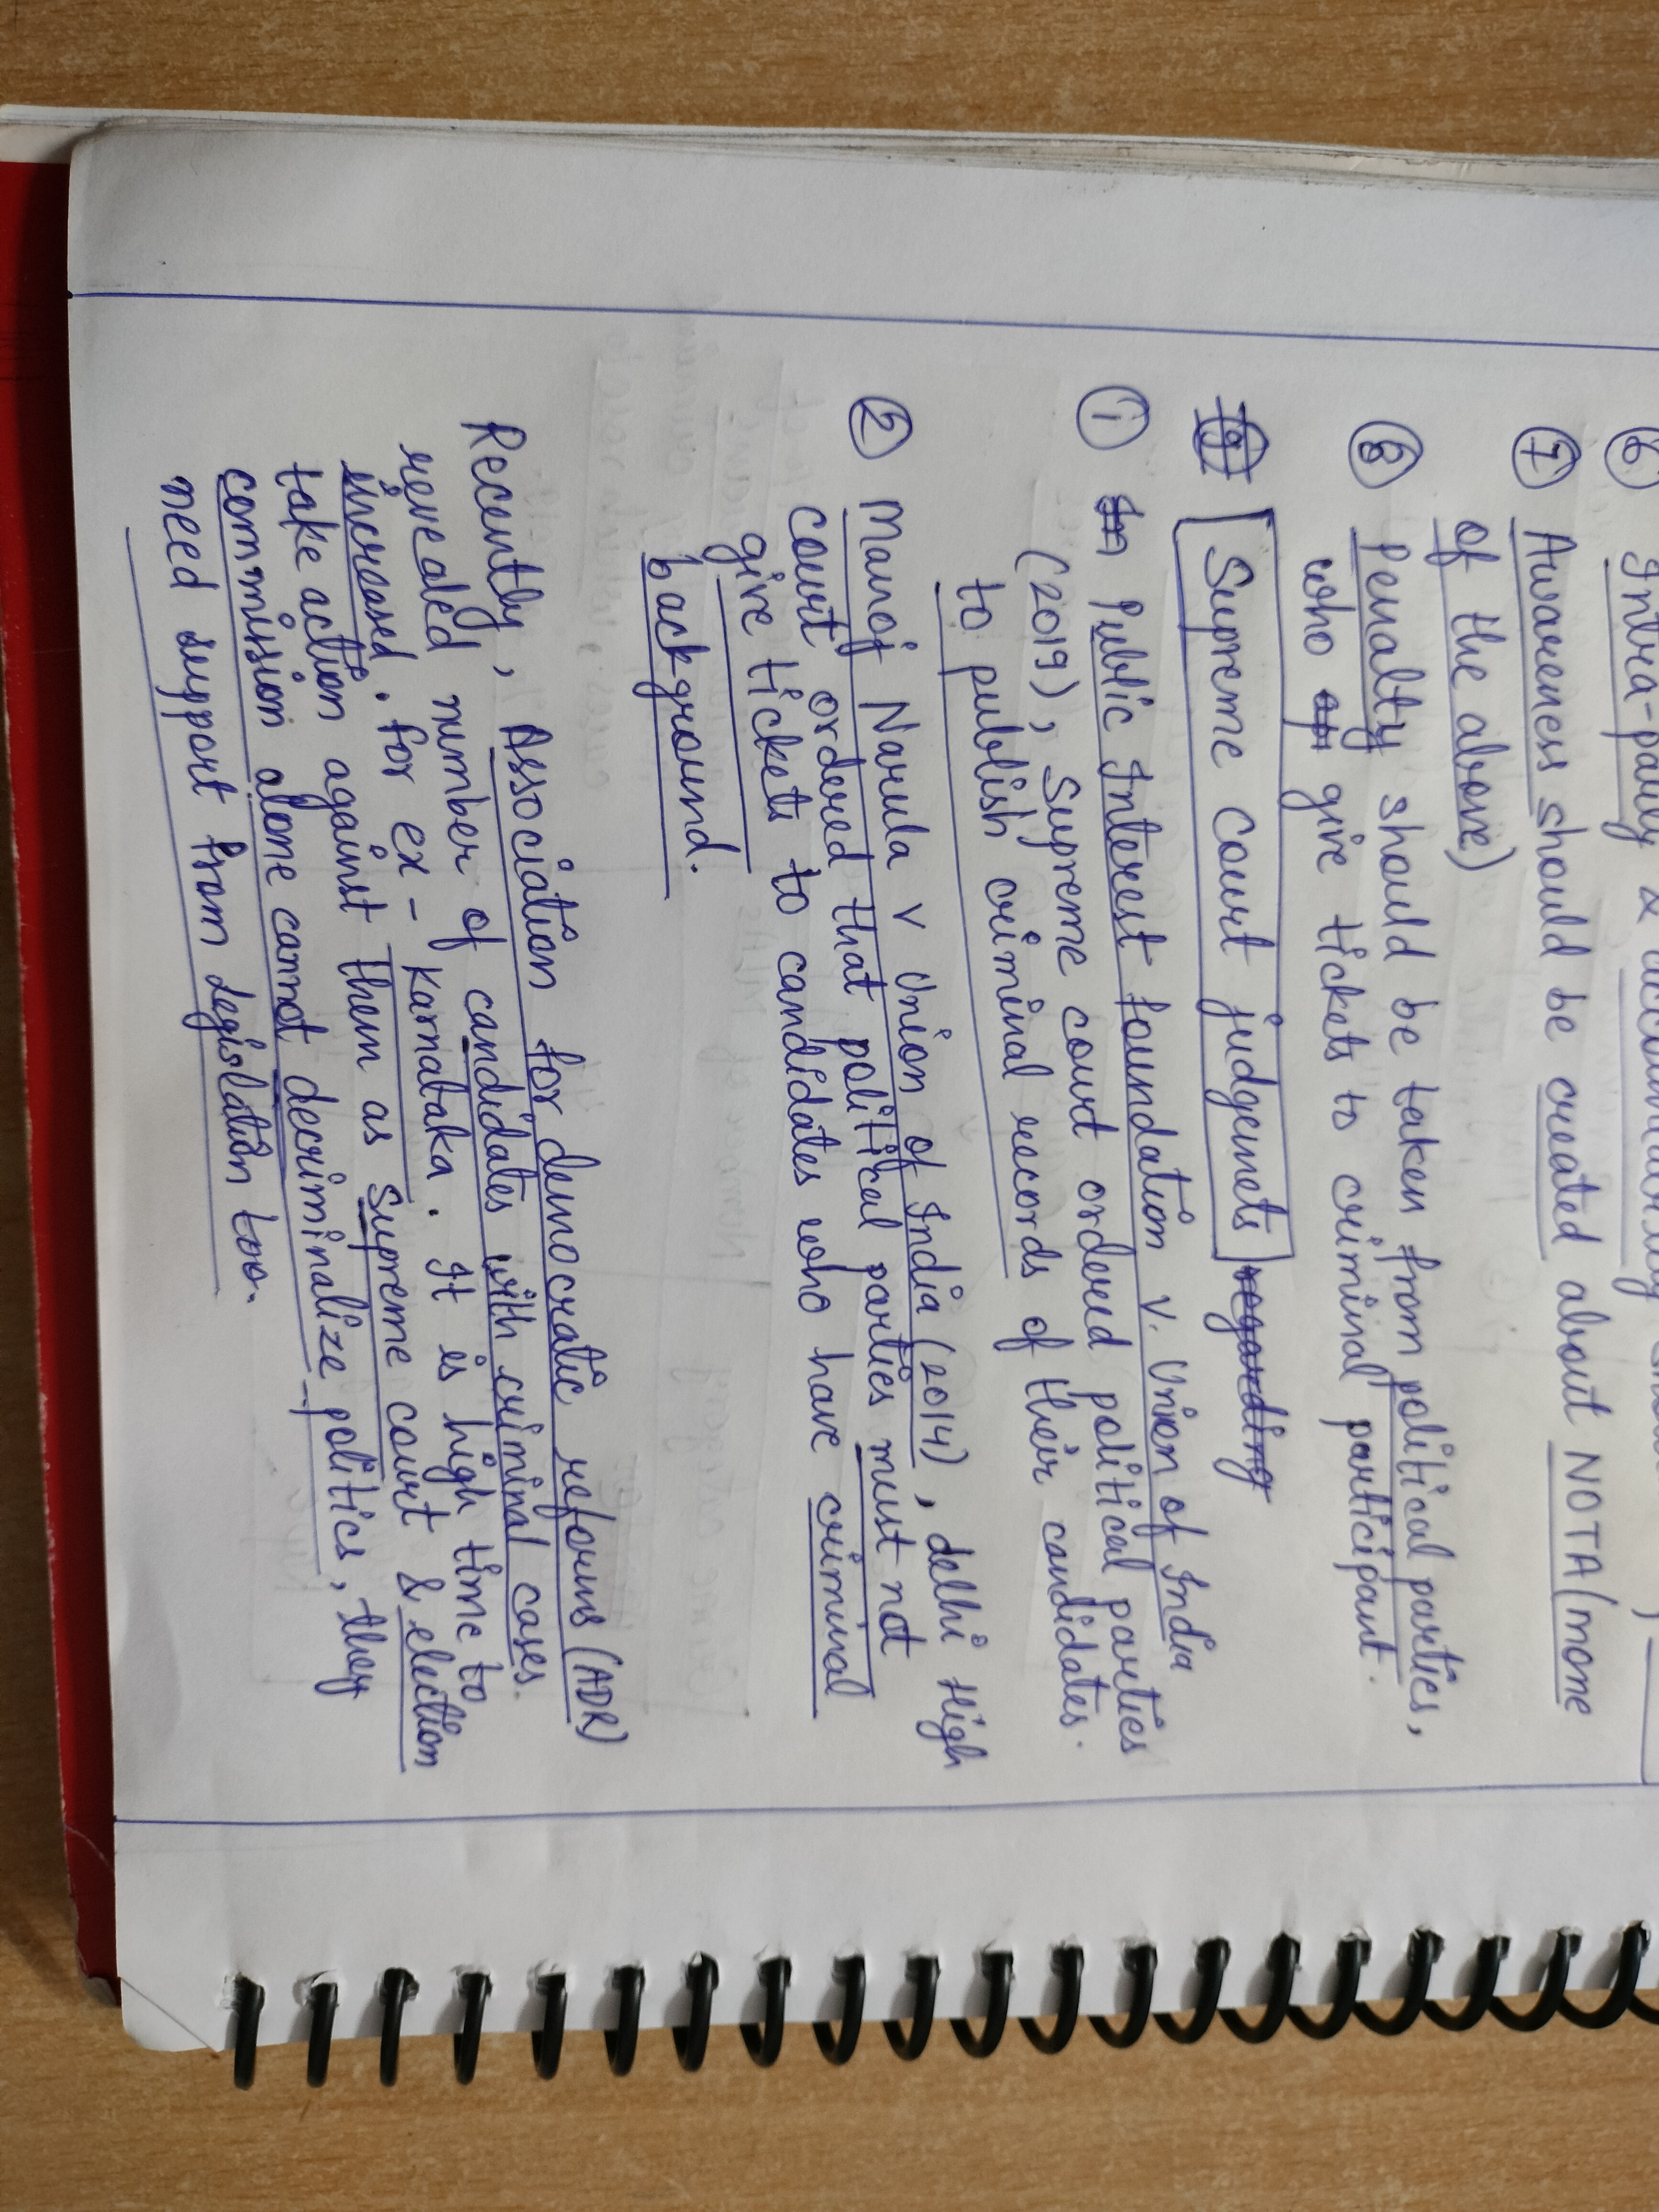 ⑥ Intra-party & accountability
⑦ Awareness should be created about NOTA (none
of the above)
⑧ Penalty should be taken from political parties,
who give tickets to criminal participant.
Supreme court judgemets regarding
① Public Interest foundation v. Union of India
(2019), Supreme court ordered political parties
to publish criminal records of their candidates.
② Manoj Narula v Union of India (2014), delhi High
court ordered that political parties must not
give tickets to candidates who have criminal
background.
Recently, Association for democratic reforms (ADR)
revealed number of candidates with criminal cases
increased. for ex - Karnataka. It is high time to
take action against them as Supreme court & election
commission alone cannot decriminalize politics, they
need support from legislation too.